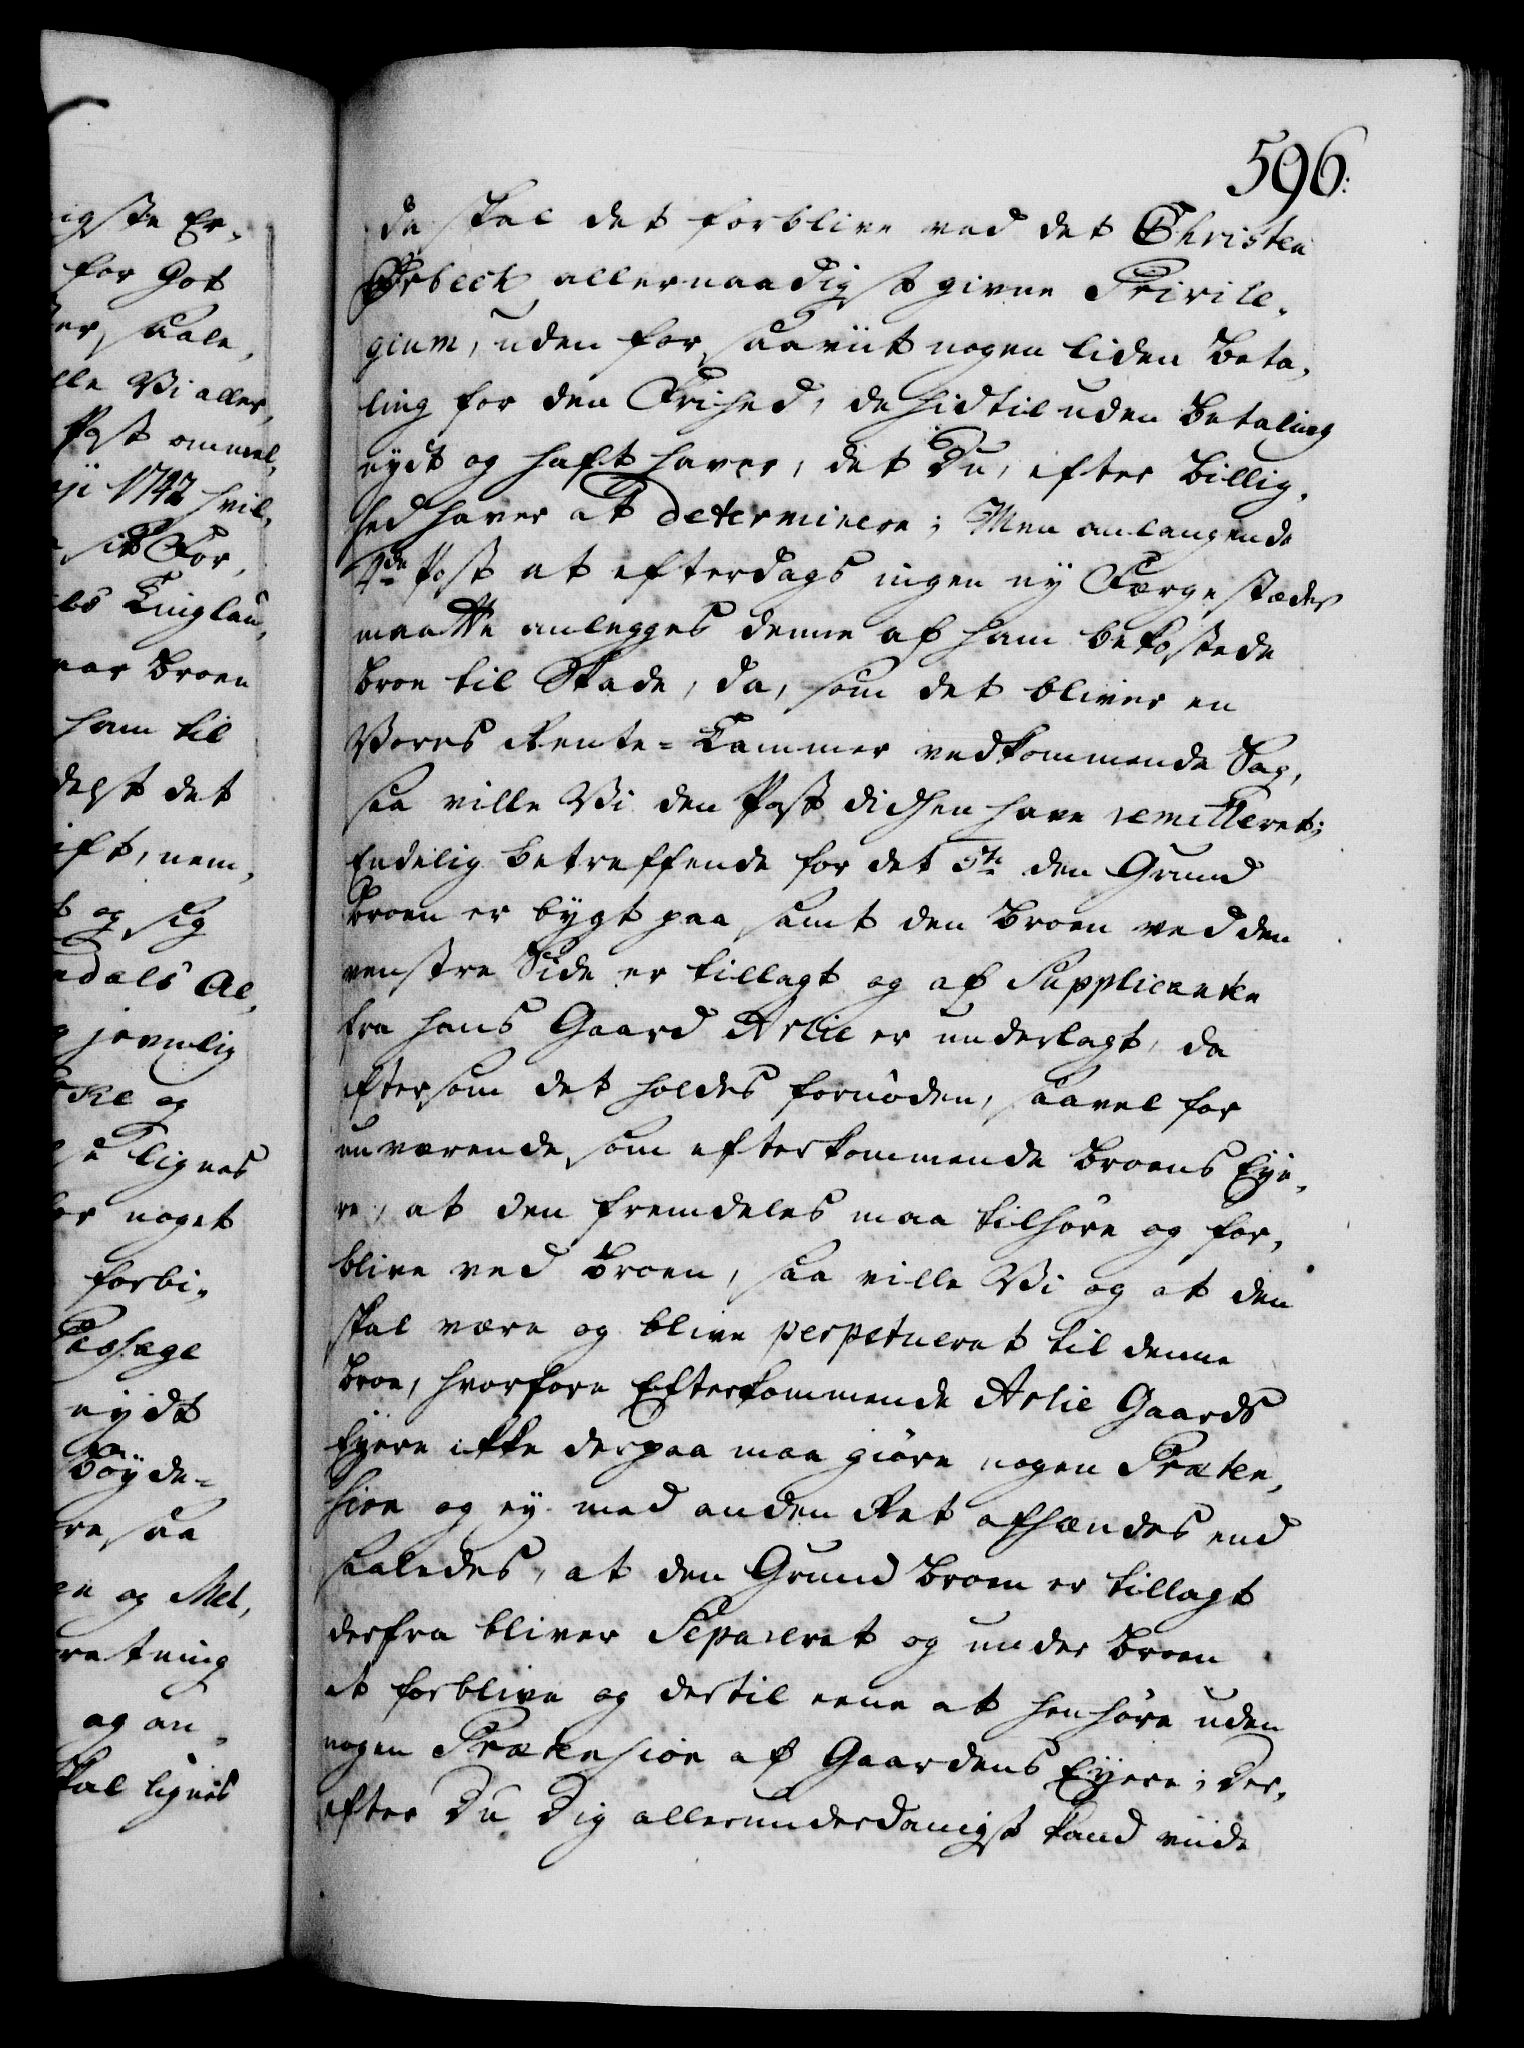 igste Er-
for Got
er, saale,
lle Vi aller,
Post ommel,
ji 1742 hvil,
sit For,
bs Tinglau,
var Broen
ham til
delst det
ift, nem,
t og sig
edals Al,
jevnlig
og
lignes
or noget
forbi-
nydt
Böyde-
re saa
og Mel,
retning
og an,
skal lignes
596.
da skal det forblive ved det Christen
Orbech allernaadigst givne Privile-
gium, uden for saaviit nogen liden Beta,
ling for den Frihed, de hidtil uden Betaling
nydt og haft haver, det Du, efter Billig,
hed haver at determinere; Men anlangende
4de Post at efterdags ingen ny Færgestædes
maatte anlegges denne af ham bekostede
Broe til Skade, da, som det bliver en
Vores Rente-Kammer vedkommende Sag,
saa ville Vi den Post didhen have remitteret;
Endelig betreffende for det 5te den Grund
Broen er bygt paa samt den Broen ved den
venstre Side er tillagt og af Supplicanten
fra hans Gaard Arlie er underlagt, da
eftersom det holdes fornöden, saavel for
nuværende som efterkommende Broens Eye,
re, at den fremdeles maa tilhöre og for,
blive ved Broen, saa ville Vi og at den
skal være og blive perpetueret til denne
Broe, hvorfore Efterkommende Arlie Gaards
Eyere ikke derpaa maa giöre nogen Præten,
sion og ey med anden Ret afhændes end
saaledes, at den Grund Broen er tillagt
derfra bliver Separeret og under Broen
at forblive og dertil eene at henhöre uden
nogen Prætension af Gaardens Eyere; Der,
efter Du Dig allerunderdanigst kand viide